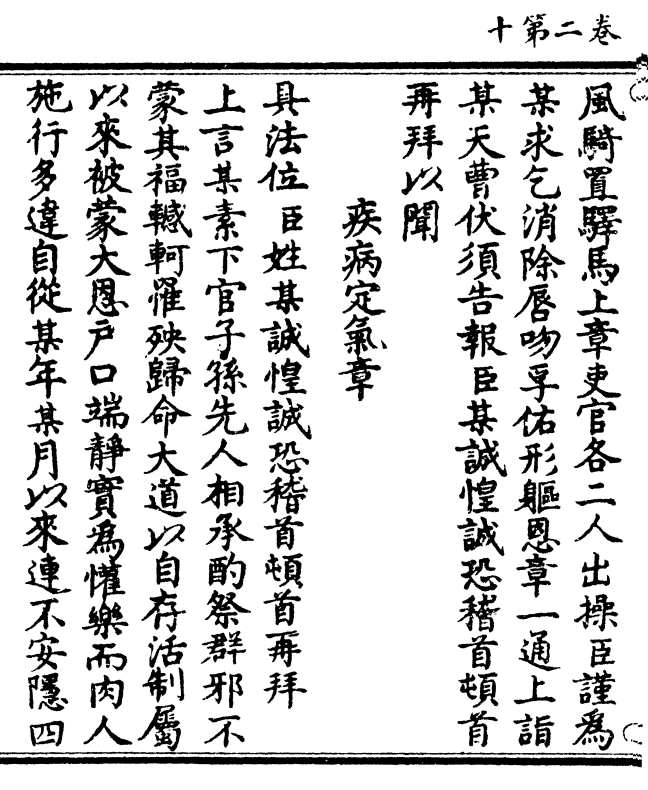 卷二第十
風騎置驛馬上章吏官各二人出操臣謹為
某求乞消除唇吻孚佑形軀恩章一通上詣
某天曹伏須告報臣某誠惶誠恐稽首頓首
再拜以聞
疾病定氣章
具法位臣姓某誠惶誠恐稽首頓首再拜
上言某素下官子孫先人相承酌祭群邪不
蒙其福轗軻罹殃歸命大道以自存活制屬
以來被蒙大恩戶口端靜實為懽樂而肉人
施行多違自從某年某月以來連不安隱四